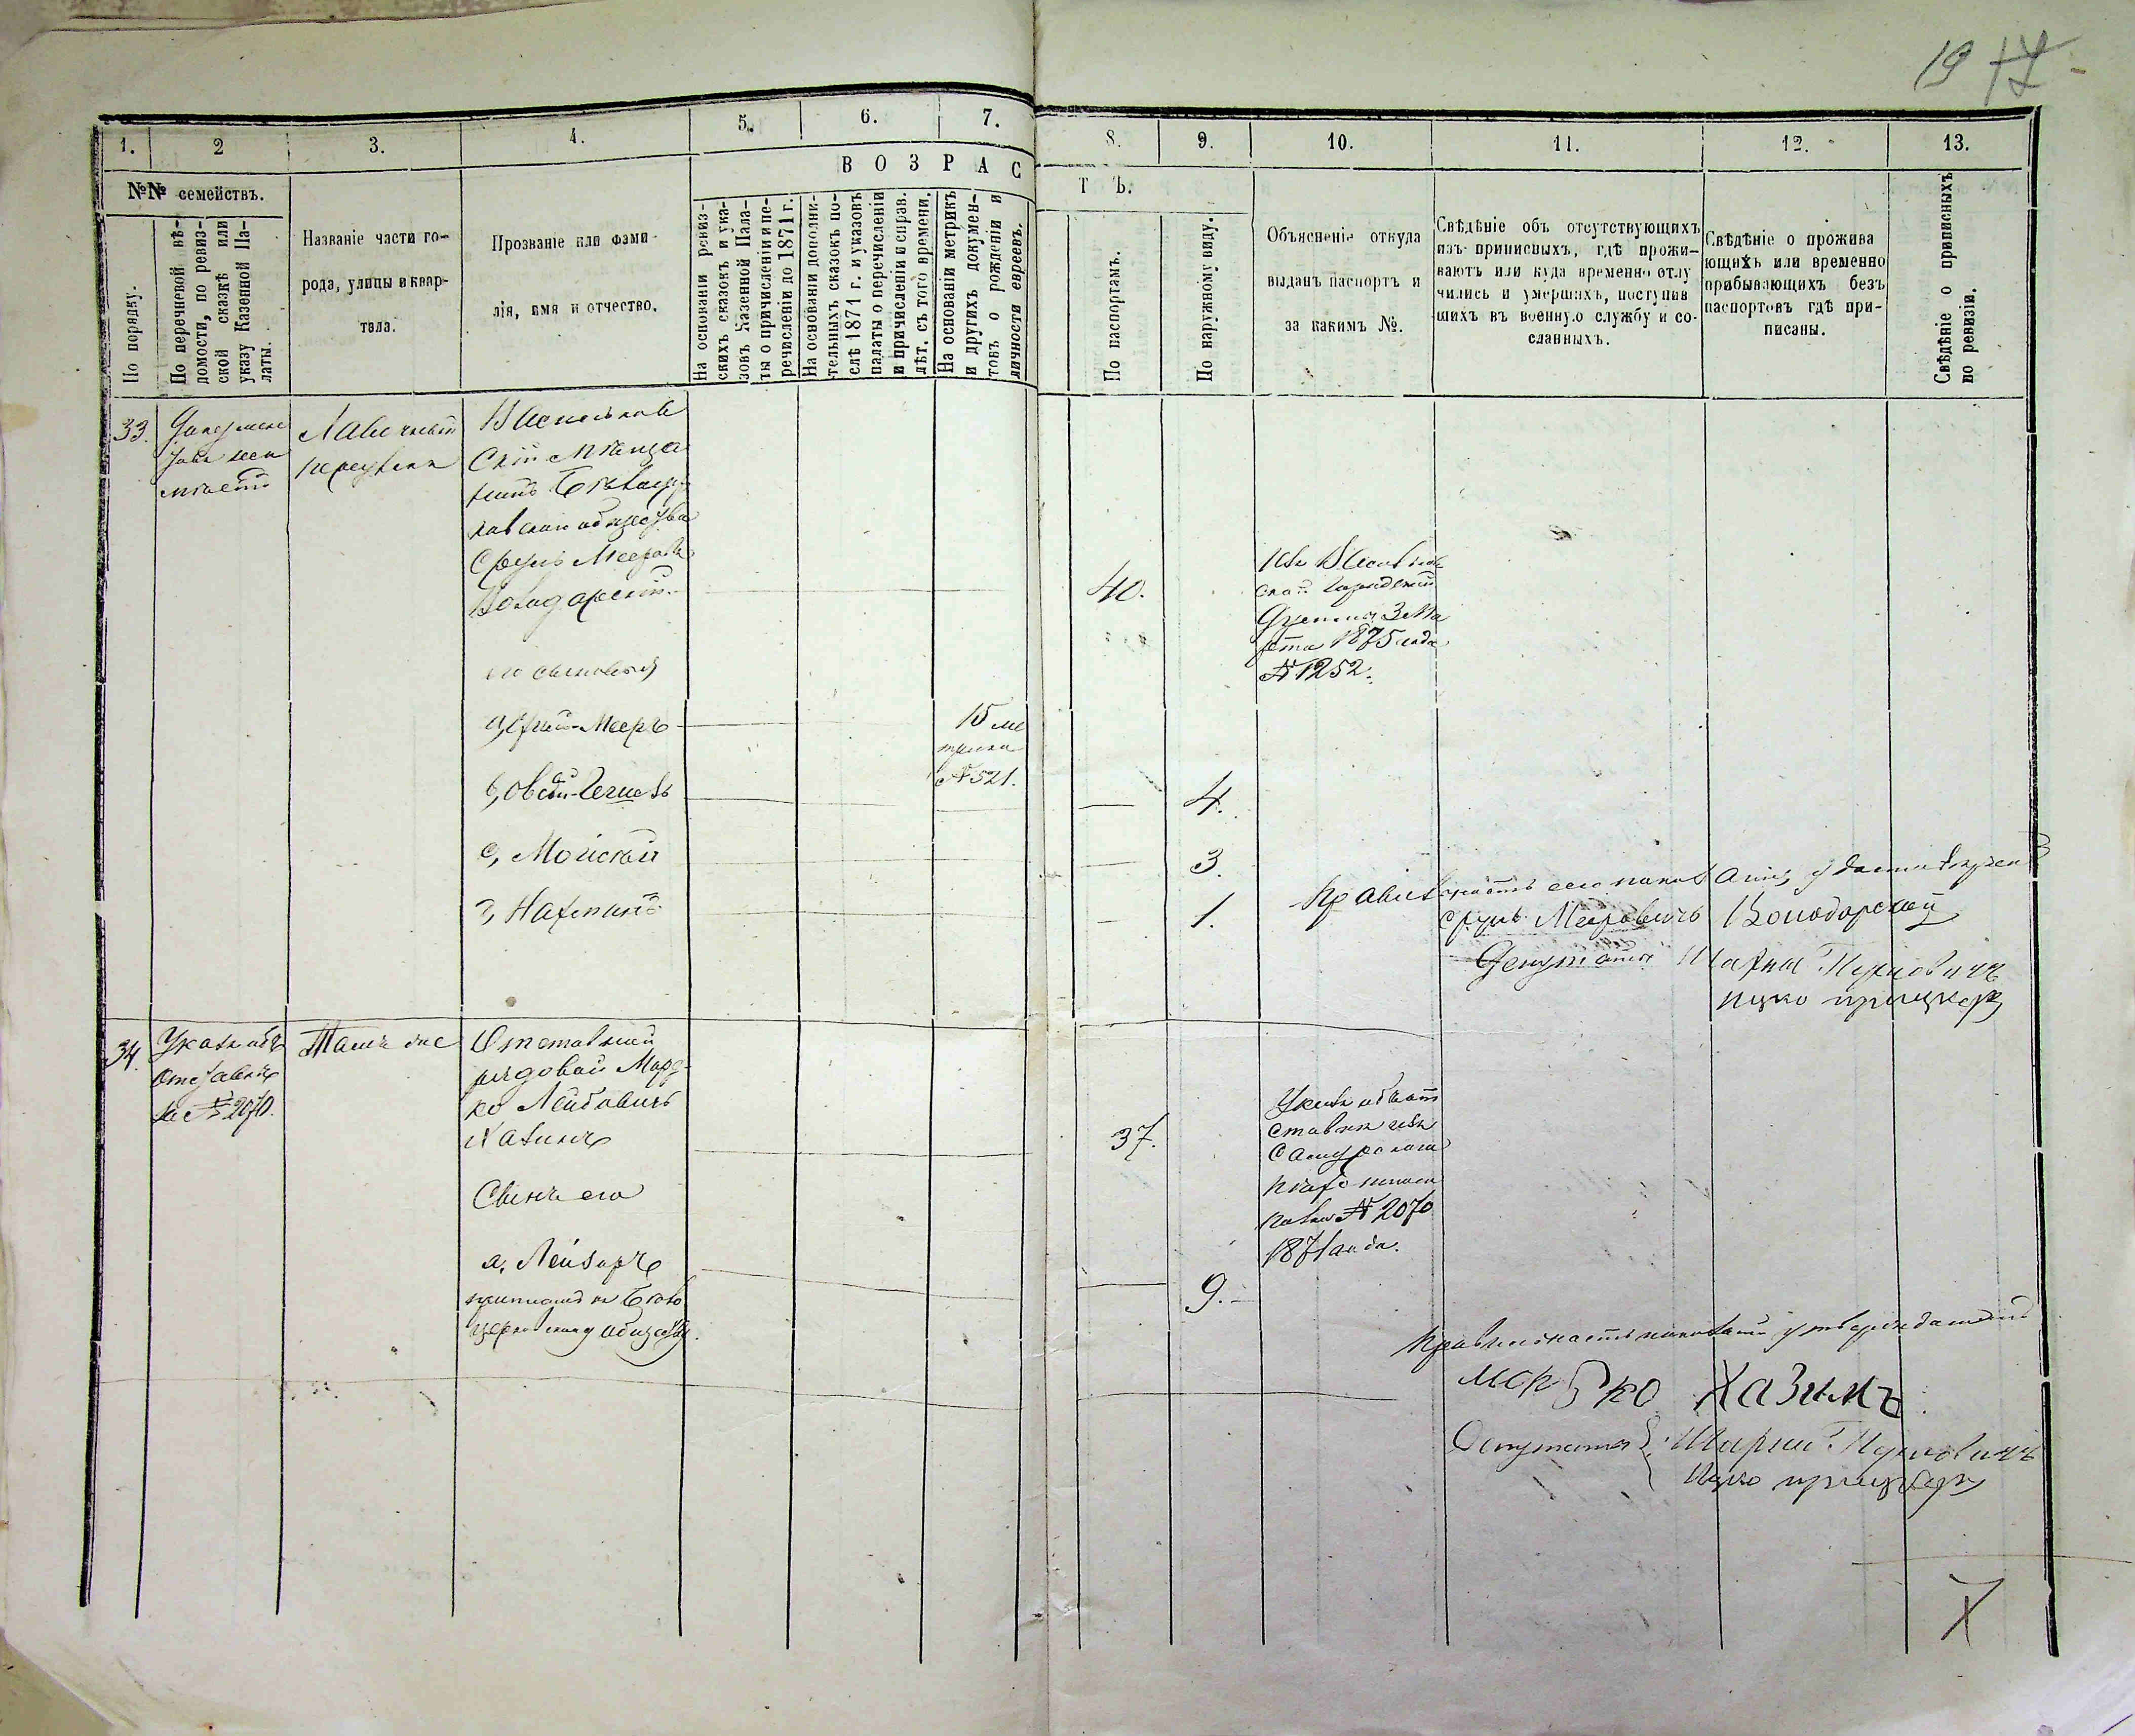 19 17
1. 2 3. 4. 5. 6. 7. 8. 9. 10. 11. 12. 13.
ВОЗРАС
ТЪ.
№№ семействъ.
По порядку.
По перечневой вѣ-
домости, по ревиз-
ской сказкѣ или
указу Казенной Па-
латы.
Названіе части го-
рода, улицы и квар-
тала.
Прозваніе или фами-
лія, имя и отчество.
На основаніи ревиз-
скихъ сказокъ и ука-
зовъ Казенной Пала-
ты о причисленіи и пе-
речисленіи до 1871 г.
На основаніи дополни-
тельныхъ сказокъ по-
слѣ 1871 г. и указовъ
палаты о перечисленіи
и причисленіи и справ.
лѣт. съ того времени.
На основаніи метрикъ
и другихъ докумен-
товъ о рожденіи и
личности евреевъ.
По паспортамъ.
По наружному виду.
Объясненіе откуда
выданъ паспортъ и
за какимъ №.
Свѣдѣніе объ отсутствующихъ
изъ приписныхъ, гдѣ прожи-
ваютъ или куда временно отлу
чились и умершихъ, поступив
шихъ въ военную службу и со-
сланныхъ.
Свѣдѣніе о прожива
ющихъ или временно
прибывающихъ безъ
паспортовъ гдѣ при-
писаны.
Свѣдѣніе о приписныхъ
по ревизіи.
33.
Лавочный
переулокъ
Васильков
скій мѣща
нинъ
общества
Сруль Мееровъ
Володарскій
40.
Изъ Васильков
ской городской
3 Ма
рта 1875 года
№ 1252.
его сыновья
Мееръ
15 ме
трика
№ 521.
4.
с, Мойсей
3.
Нахманъ
1.
Сруль Мееровичъ Володорской
Депутаты
Ицко прицкеръ
34.
Указъ объ
отставкѣ
за № 2070.
Тамъ же
Отставной
рядовой Мор
ко Лейбовичъ
Хазинъ
37.
Указъ объ от
ставкѣ изъ
Самурскаго
пѣхотнаго
полка № 2070
1871 года.
Сынъ его
а, Лейзоръ
приписанъ къ Бѣло
церковскому обществу.
9.
Правильность показаній утверждаемъ
Мор ко Хазимъ
Депутаты
Ицко прицкеръ